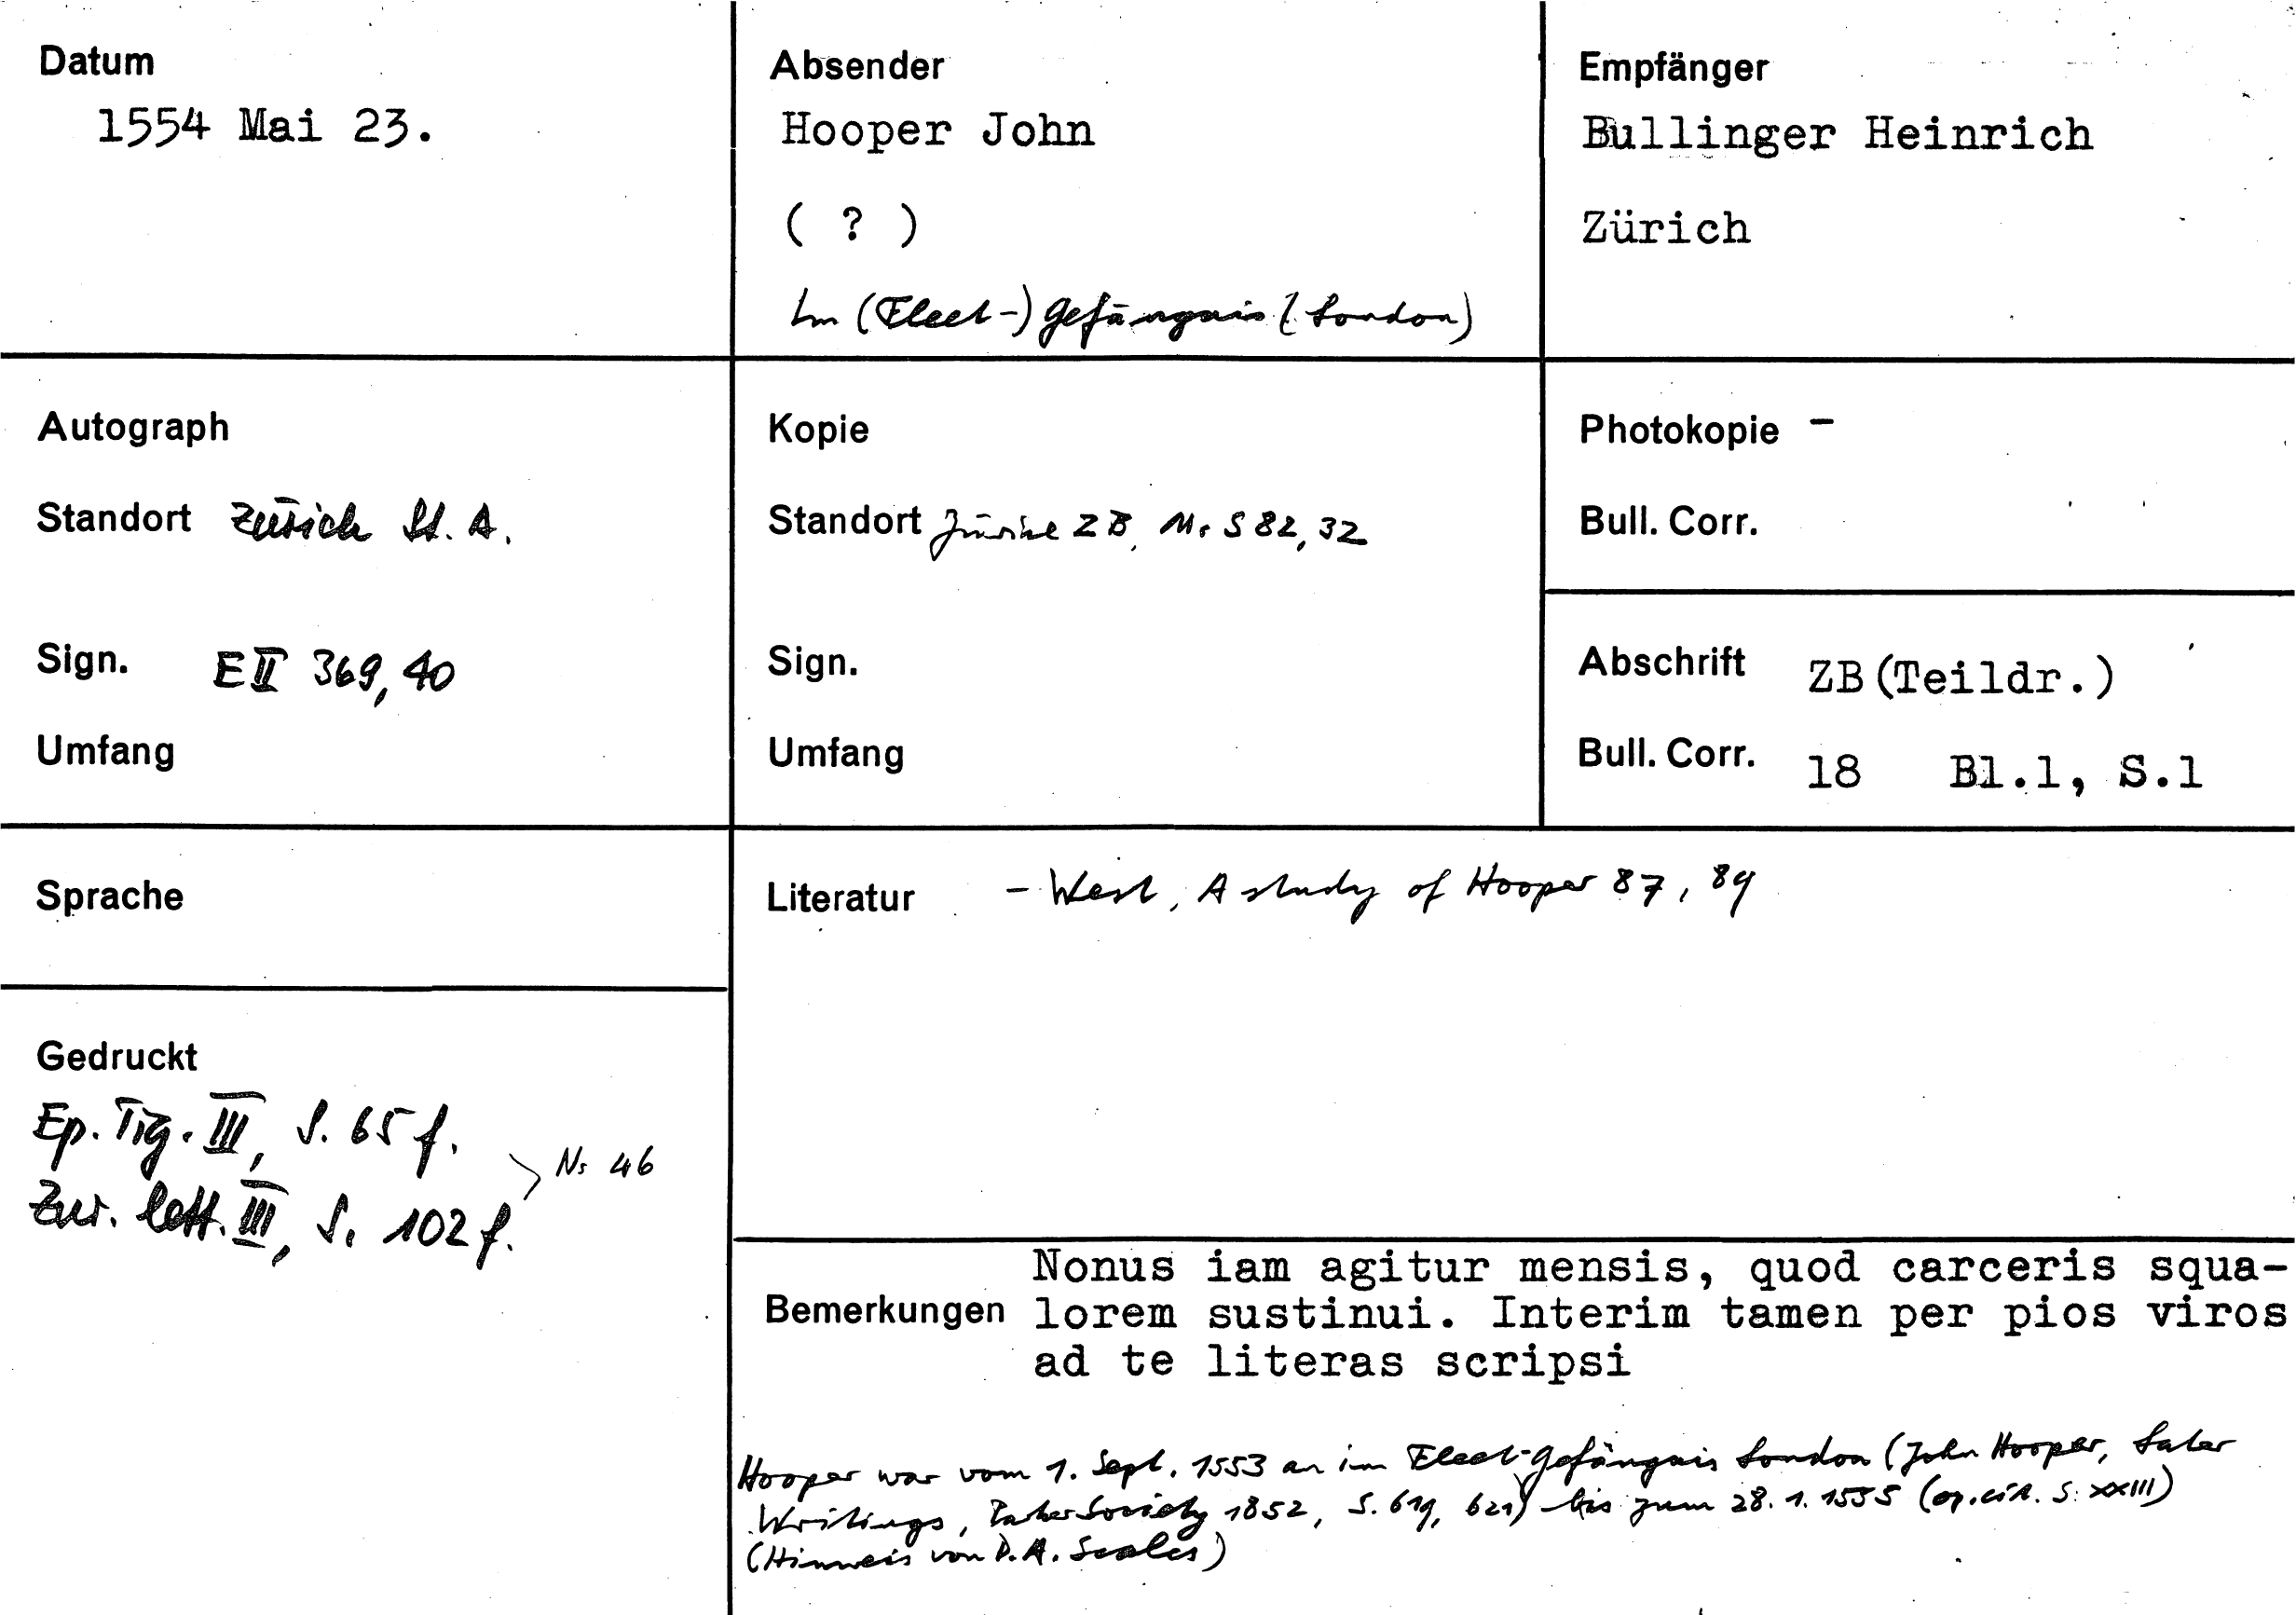 Datum
1554 Mai 23.
Absender
Hooper John
( ? )
Im (Fleet-) Gefängnis (London)
Empfänger
Bullinger Heinrich
Zürich
Autograph
Standort Zürich St. A.
Sign. E II 369, 40
Umfang
Kopie
Standort Zürich ZB, Ms S 82, 32
Sign.
Umfang
Photokopie -
Bull. Corr.
Abschrift ZB (Teildr.)
Bull. Corr. 18 Bl.1, S.1
Sprache
Literatur - West, A study of Hooper 87, 89
Gedruckt
Ep. Tig. III, S. 65 f.
Zur. lett. III, S. 102 f.
Nr 46
Bemerkungen
Nonus iam agitur mensis, quod carceris squa-
lorem sustinui. Interim tamen per pios viros
ad te literas scripsi
Hooper war vom 1. Sept. 1553 an im Fleet-Gefängnis London (John Hooper, Later
Writings, Parker Society 1852, S. 619, 621) bis zum 28. 1. 1555 (op. cit. S. XXIII)
(Hinweis von D. A. Scales)